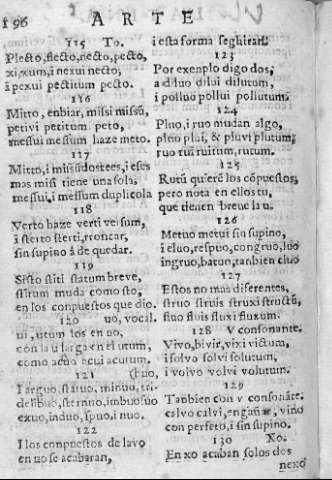 196 ARTE
115 To.
Plecto, flecto, necto, pecto,
xi, xum, i nexui necto;
i pexui pectitum pecto.
116
Mitto, enbiar, missi missū,
petivi petitum peto,
messui messum haze meto.
117
Mitto, i missi dos tees, i eses
mas misi tiene una sola;
messui, i messum duplicola
118
Verto haze verti versum,
i sterto sterti, roncar,
sin supino à de quedar.
119
Sisto stiti statum breve,
stitum muda como sto,
en los conpuestos que dio.
120 uo, vocal.
ui, utum los en uo,
con la u larga en el utum,
como acua acui acutum.
121 (buo,
I arguo, statuo, minuo, tri-
delibuo, sternuo, imbuo suo
exuo, induo, spuo, i nuo.
122
I los conpuestos de lavo
en uo se acabaran,
i esta forma seghiran.
123
Por exenplo digo dos,
a diluo dilui dilutum,
i polluo pollui pollutum.
124
Pluo, i ruo mudan algo,
pluo plui, & pluvi plutum;
ruo rui ruitum, rutum.
125
Rutū quierē los cōpuestos,
pero nota en ellos tu,
que tienen breve la u.
126
Metuo metui sin supino,
i cluo, respuo, congruo, luo
ingruo, batuo, tanbien cluo
127
Estos no mas diferentes,
struo struis struxi structū,
fluo fluis fluxi fluxum.
128 V consonante.
Vivo, bivir, vixi victum,
i solvo solvi solutum,
i volvo volvi volutum.
129
Tanbien con v consonāte.
calvo calvi, engañar, vino
con perfeto, i sin supino.
130 Xo.
En xo acaban solos dos
nexo